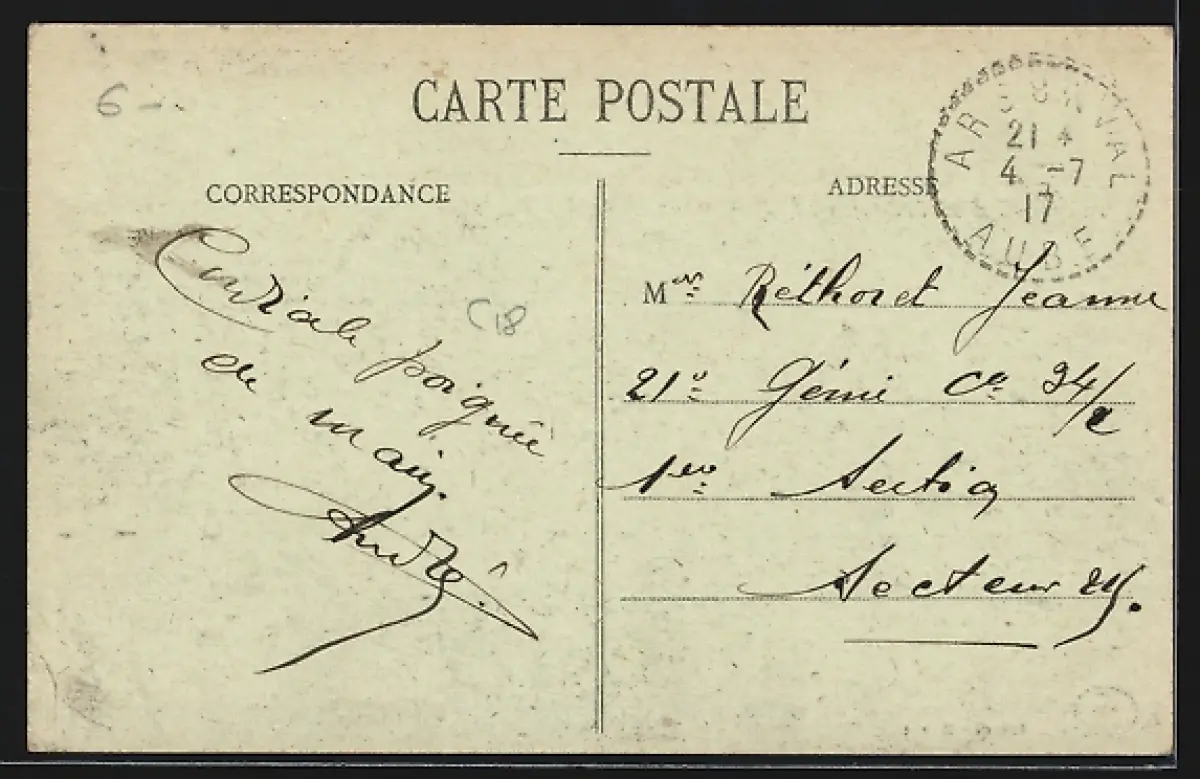 6 -
CARTE POSTALE
CORRESPONDANCE
ADRESSE
ARSONVAL
21 *
4 -7
17
AUBE
Cordiale poignée
de main.
André
C18
Mr Réthoret Jeanne
21e Génie Cie 24/2
1ere Section
Secteur